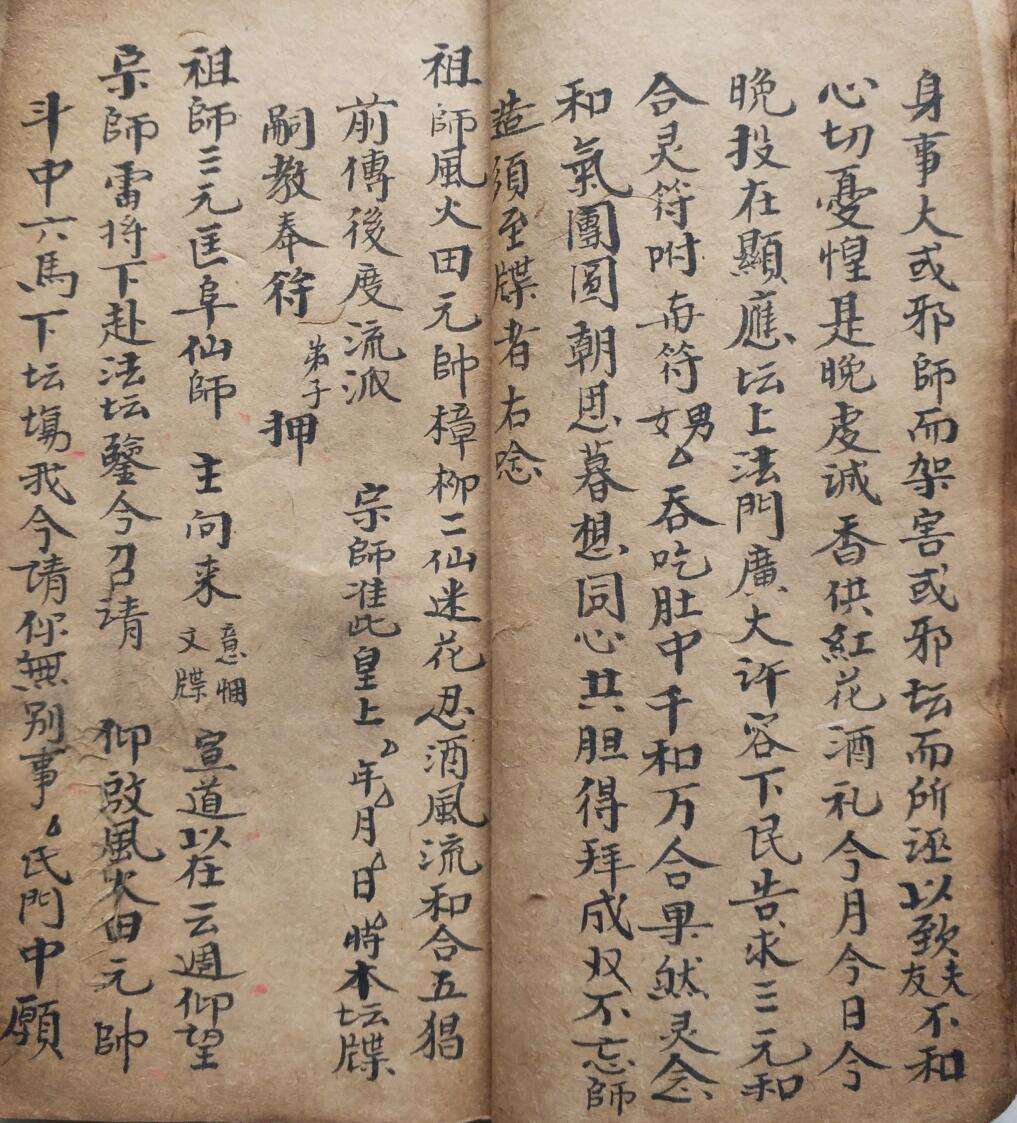 身事大或邪師而架害或邪坛而所誣以致夫友不和
心切憂惶是晚虔诚香供紅花酒礼今月今日今
晚投在顯應坛上法門廣大许容下民告求三元和
合灵符咐南符男女吞吃肚中千和万合果然灵念
和氣團圓朝思暮想同心共胆得拜成双不忘師
造須至牒者右唸
祖師風火田元帥樟柳二仙迷花忍酒風流和合五猖
前傳後度流派 宗師准此皇上 年月日時本坛牒
嗣教奉符弟子 押
祖師三元匡阜仙師 主向来意悃文牒宣道以在云週仰望
宗師雷将下赴法坛鑒今召请 仰啟風火田元帥
斗中六馬下坛場我今请你無别事氏門中願